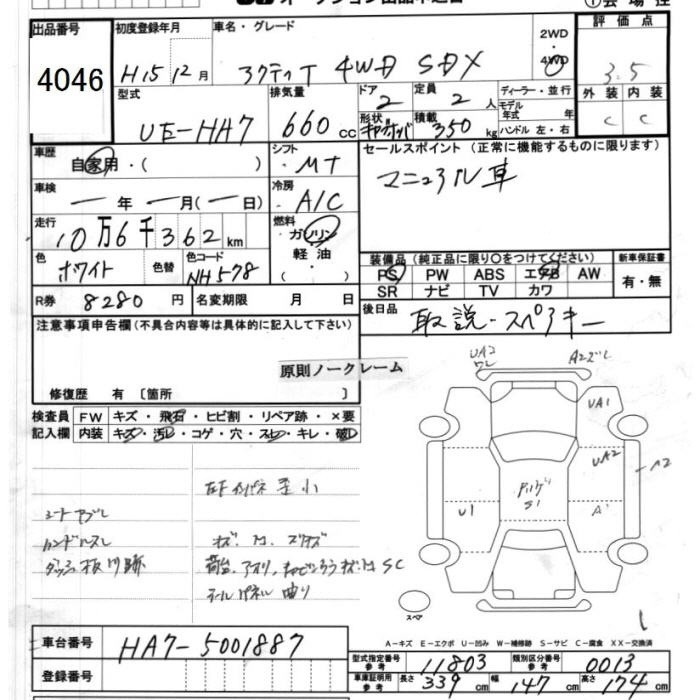 出品番号 4046
初度登録年月 H15年12月
車名・グレード アクティT 4WD SDX
2WD・4WD
評価点 3.5
外装 内装
C C
型式 UE-HA7
排気量 660cc
ドア 2
定員 2人
形状
積載 350kg
ディーラー・並行
モデル年式 年
ハンドル 左・右
車歴 自家用・( )
シフト ・MT
車検 ー年ー月(ー日)
冷房 ・A/C
セールスポイント(正常に機能するものに限ります)
マニュアル車
走行 10万6千362km
燃料 ガソリン・軽油・( )
色 ホワイト
色替
色コード NH578
R券 8280円
名変期限 月 日
装備品(純正品に限り○をつけてください)
PS PW ABS エアB AW
SR ナビ TV カワ
新車保証書
有・無
後日品 取説・スペアキー
注意事項申告欄(不具合内容等は具体的に記入して下さい)
原則ノークレーム
修復歴 有〔箇所 〕
検査員記入欄
FW キズ・飛石・ヒビ割・リペア跡・×要
内装 キズ・汚レ・コゲ・穴・スレ・キレ・破レ
左Fインパネ歪小
シートアブレ
ハンドルスレ
テールパネル曲り
UA2 A2
UA1
UA2 A2
U1 A1
S1
スペア
A-キズ E-エクボ U-凹み W-補修跡 S-サビ C-腐食 XX-交換済
車台番号 HA7-5001887
登録番号
型式指定番号 参考 11803
類別区分番号 参考 0013
車庫証明用 参考 長さ 339cm 幅 147cm 高さ 174cm